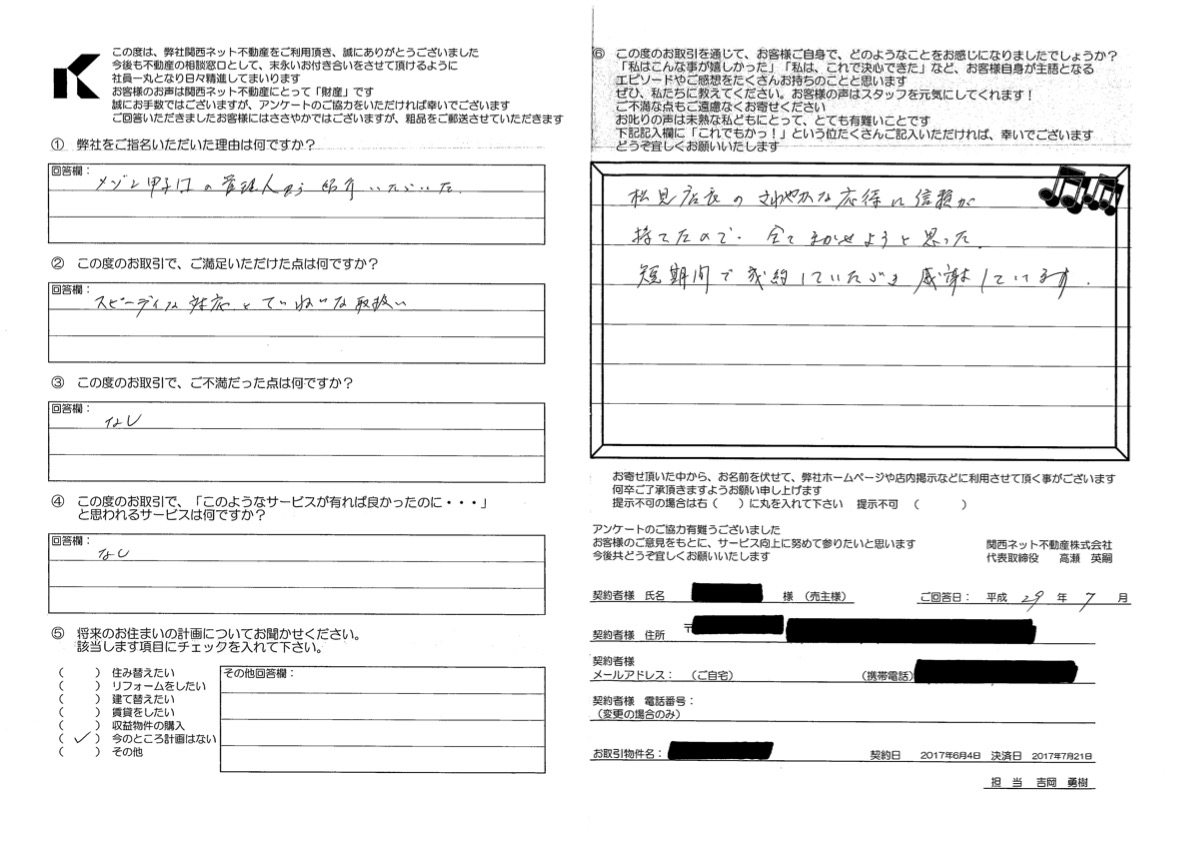 この度は、弊社関西ネット不動産をご利用頂き、誠にありがとうございました
今後も不動産の相談窓口として、末永いお付き合いをさせて頂けるように
社員一丸となり日々精進してまいります
お客様のお声は関西ネット不動産にとって「財産」です
誠にお手数ではございますが、アンケートのご協力をいただければ幸いでございます
ご回答いただきましたお客様にはささやかではございますが、粗品をご郵送させていただきます
① 弊社をご指名いただいた理由は何ですか?
回答欄:
メゾン甲子園の管理人から紹介いただいた。
② この度のお取引で、ご満足いただけた点は何ですか?
回答欄:
スピーディな対応とていねいな取扱い
③ この度のお取引で、ご不満だった点は何ですか?
回答欄:
なし
④ この度のお取引で、「このようなサービスが有れば良かったのに・・・」
と思われるサービスは何ですか?
回答欄:
なし
⑤ 将来のお住まいの計画についてお聞かせください。
該当します項目にチェックを入れて下さい。
( ) 住み替えたい
( ) リフォームをしたい
( ) 建て替えたい
( ) 賃貸をしたい
( ) 収益物件の購入
(✓) 今のところ計画はない
( ) その他
その他回答欄:
⑥ この度のお取引を通じて、お客様ご自身で、どのようなことをお感じになりましたでしょうか?
「私はこんな事が嬉しかった」「私は、これで決心できた」など、お客様自身が主語となる
エピソードやご感想をたくさんお持ちのことと思います
ぜひ、私たちに教えてください。お客様の声はスタッフを元気にしてくれます!
ご不満な点もご遠慮なくお寄せください
お叱りの声は未熟な私どもにとって、とても有難いことです
下記記入欄に「これでもかっ!」という位たくさんご記入いただければ、幸いでございます
どうぞ宜しくお願いいたします
松見店長のさわやかな応待に信頼が
持てたので、全てまかせようと思った。
短期間で成約していただき感謝しています。
お寄せ頂いた中から、お名前を伏せて、弊社ホームページや店内掲示などに利用させて頂く事がございます
何卒ご了承頂きますようお願い申し上げます
提示不可の場合は右( )に丸を入れて下さい 提示不可 ( )
アンケートのご協力有難うございました
お客様のご意見をもとに、サービス向上に努めて参りたいと思います
今後共どうぞ宜しくお願いいたします
関西ネット不動産株式会社
代表取締役 高瀬 英嗣
契約者様 氏名 様 (売主様)
ご回答日: 平成 29 年 7 月
契約者様 住所 〒
契約者様
メールアドレス: (ご自宅) (携帯電話)
契約者様 電話番号:
(変更の場合のみ)
お取引物件名: 契約日 2017年6月4日 決済日 2017年7月21日
担 当 吉岡 勇樹